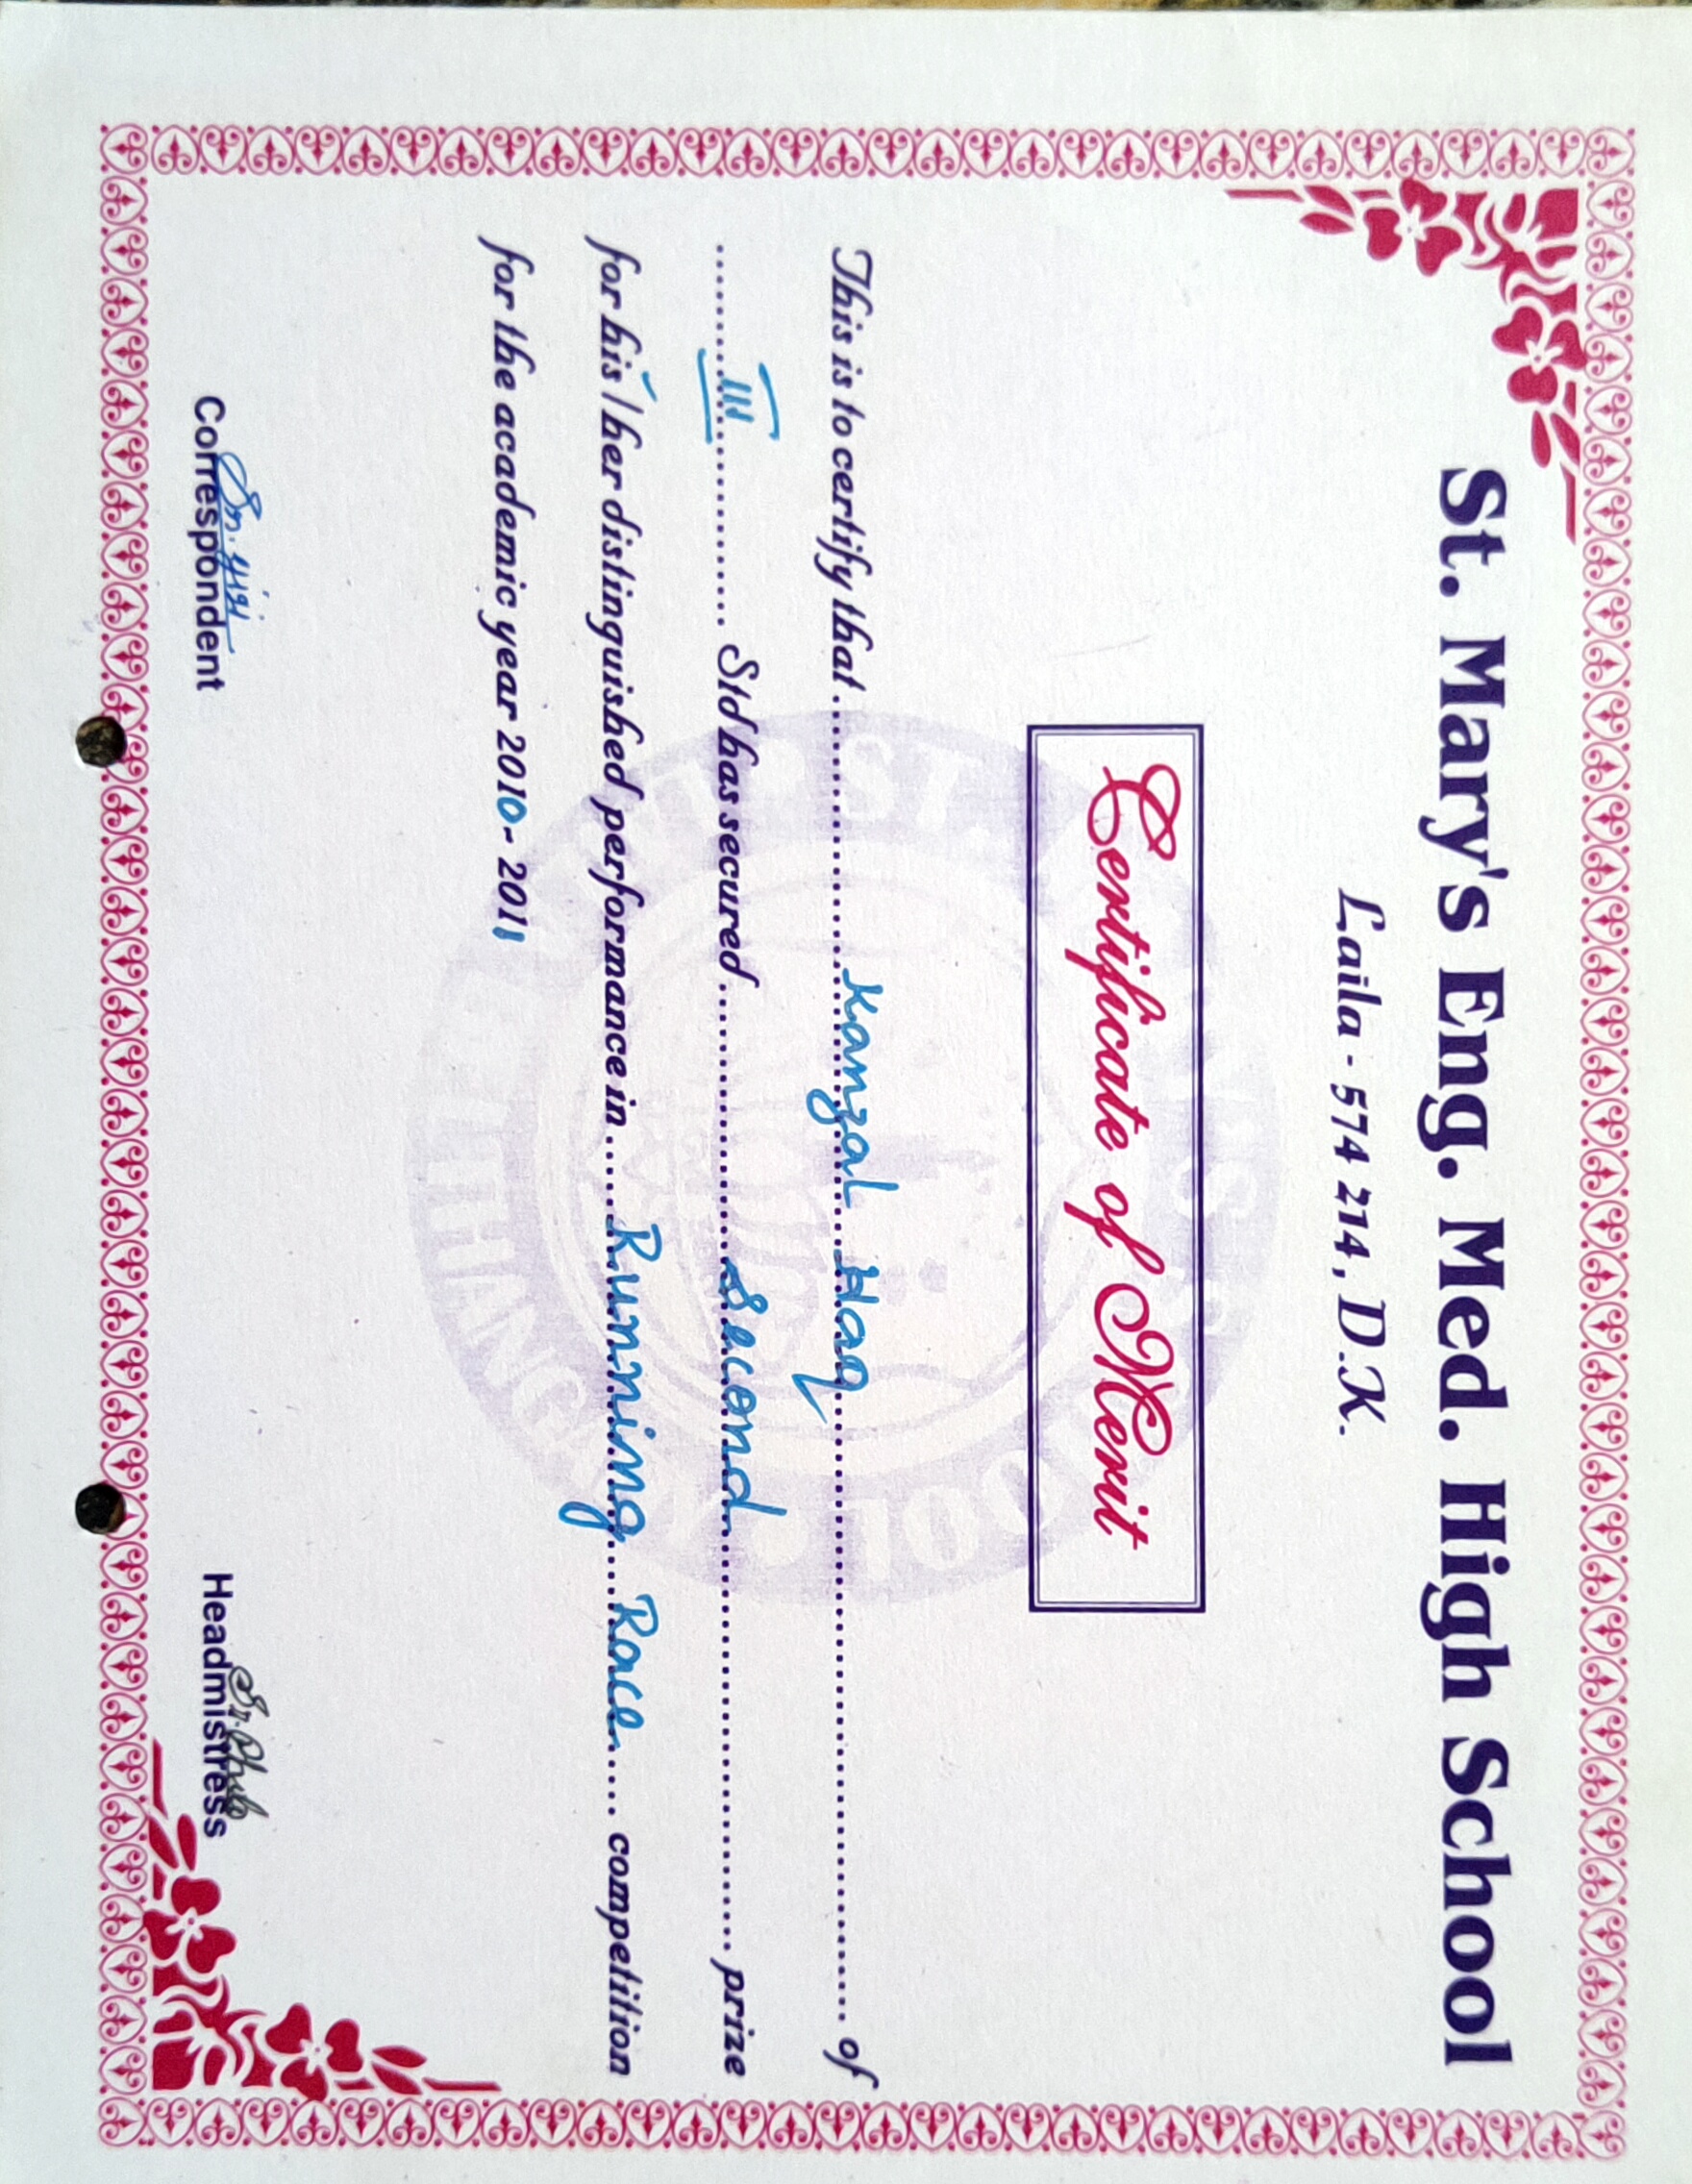 St. Mary's Eng. Med. High School
Laila - 574 214, D.K.
Certificate of Merit
This is to certify that Kanzal Haq of
III Std has secured Second prize
for his / her distinguished performance in Running Race competition
for the academic year 2010 - 2011
Correspondent
Headmistress